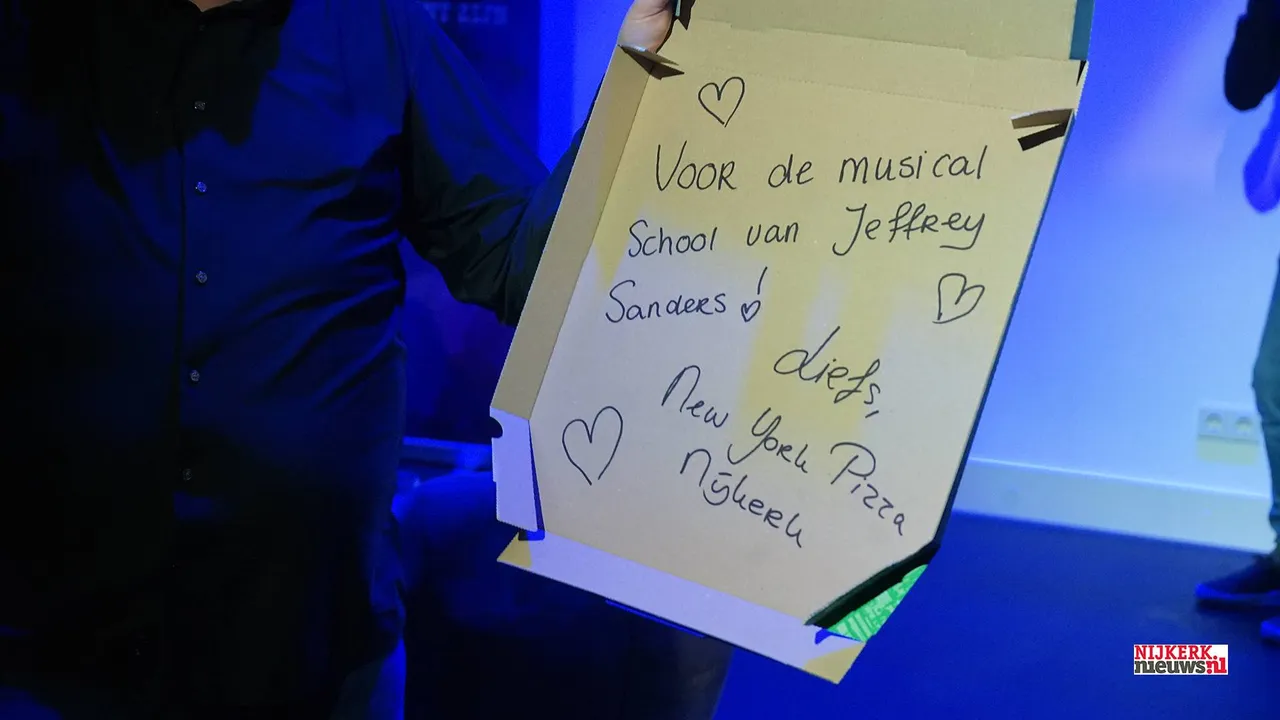 Voor de musical
School van Jeffrey
Sanders!
Liefs,
New York Pizza
Nijkerk
NIJKERK
nieuws.nl